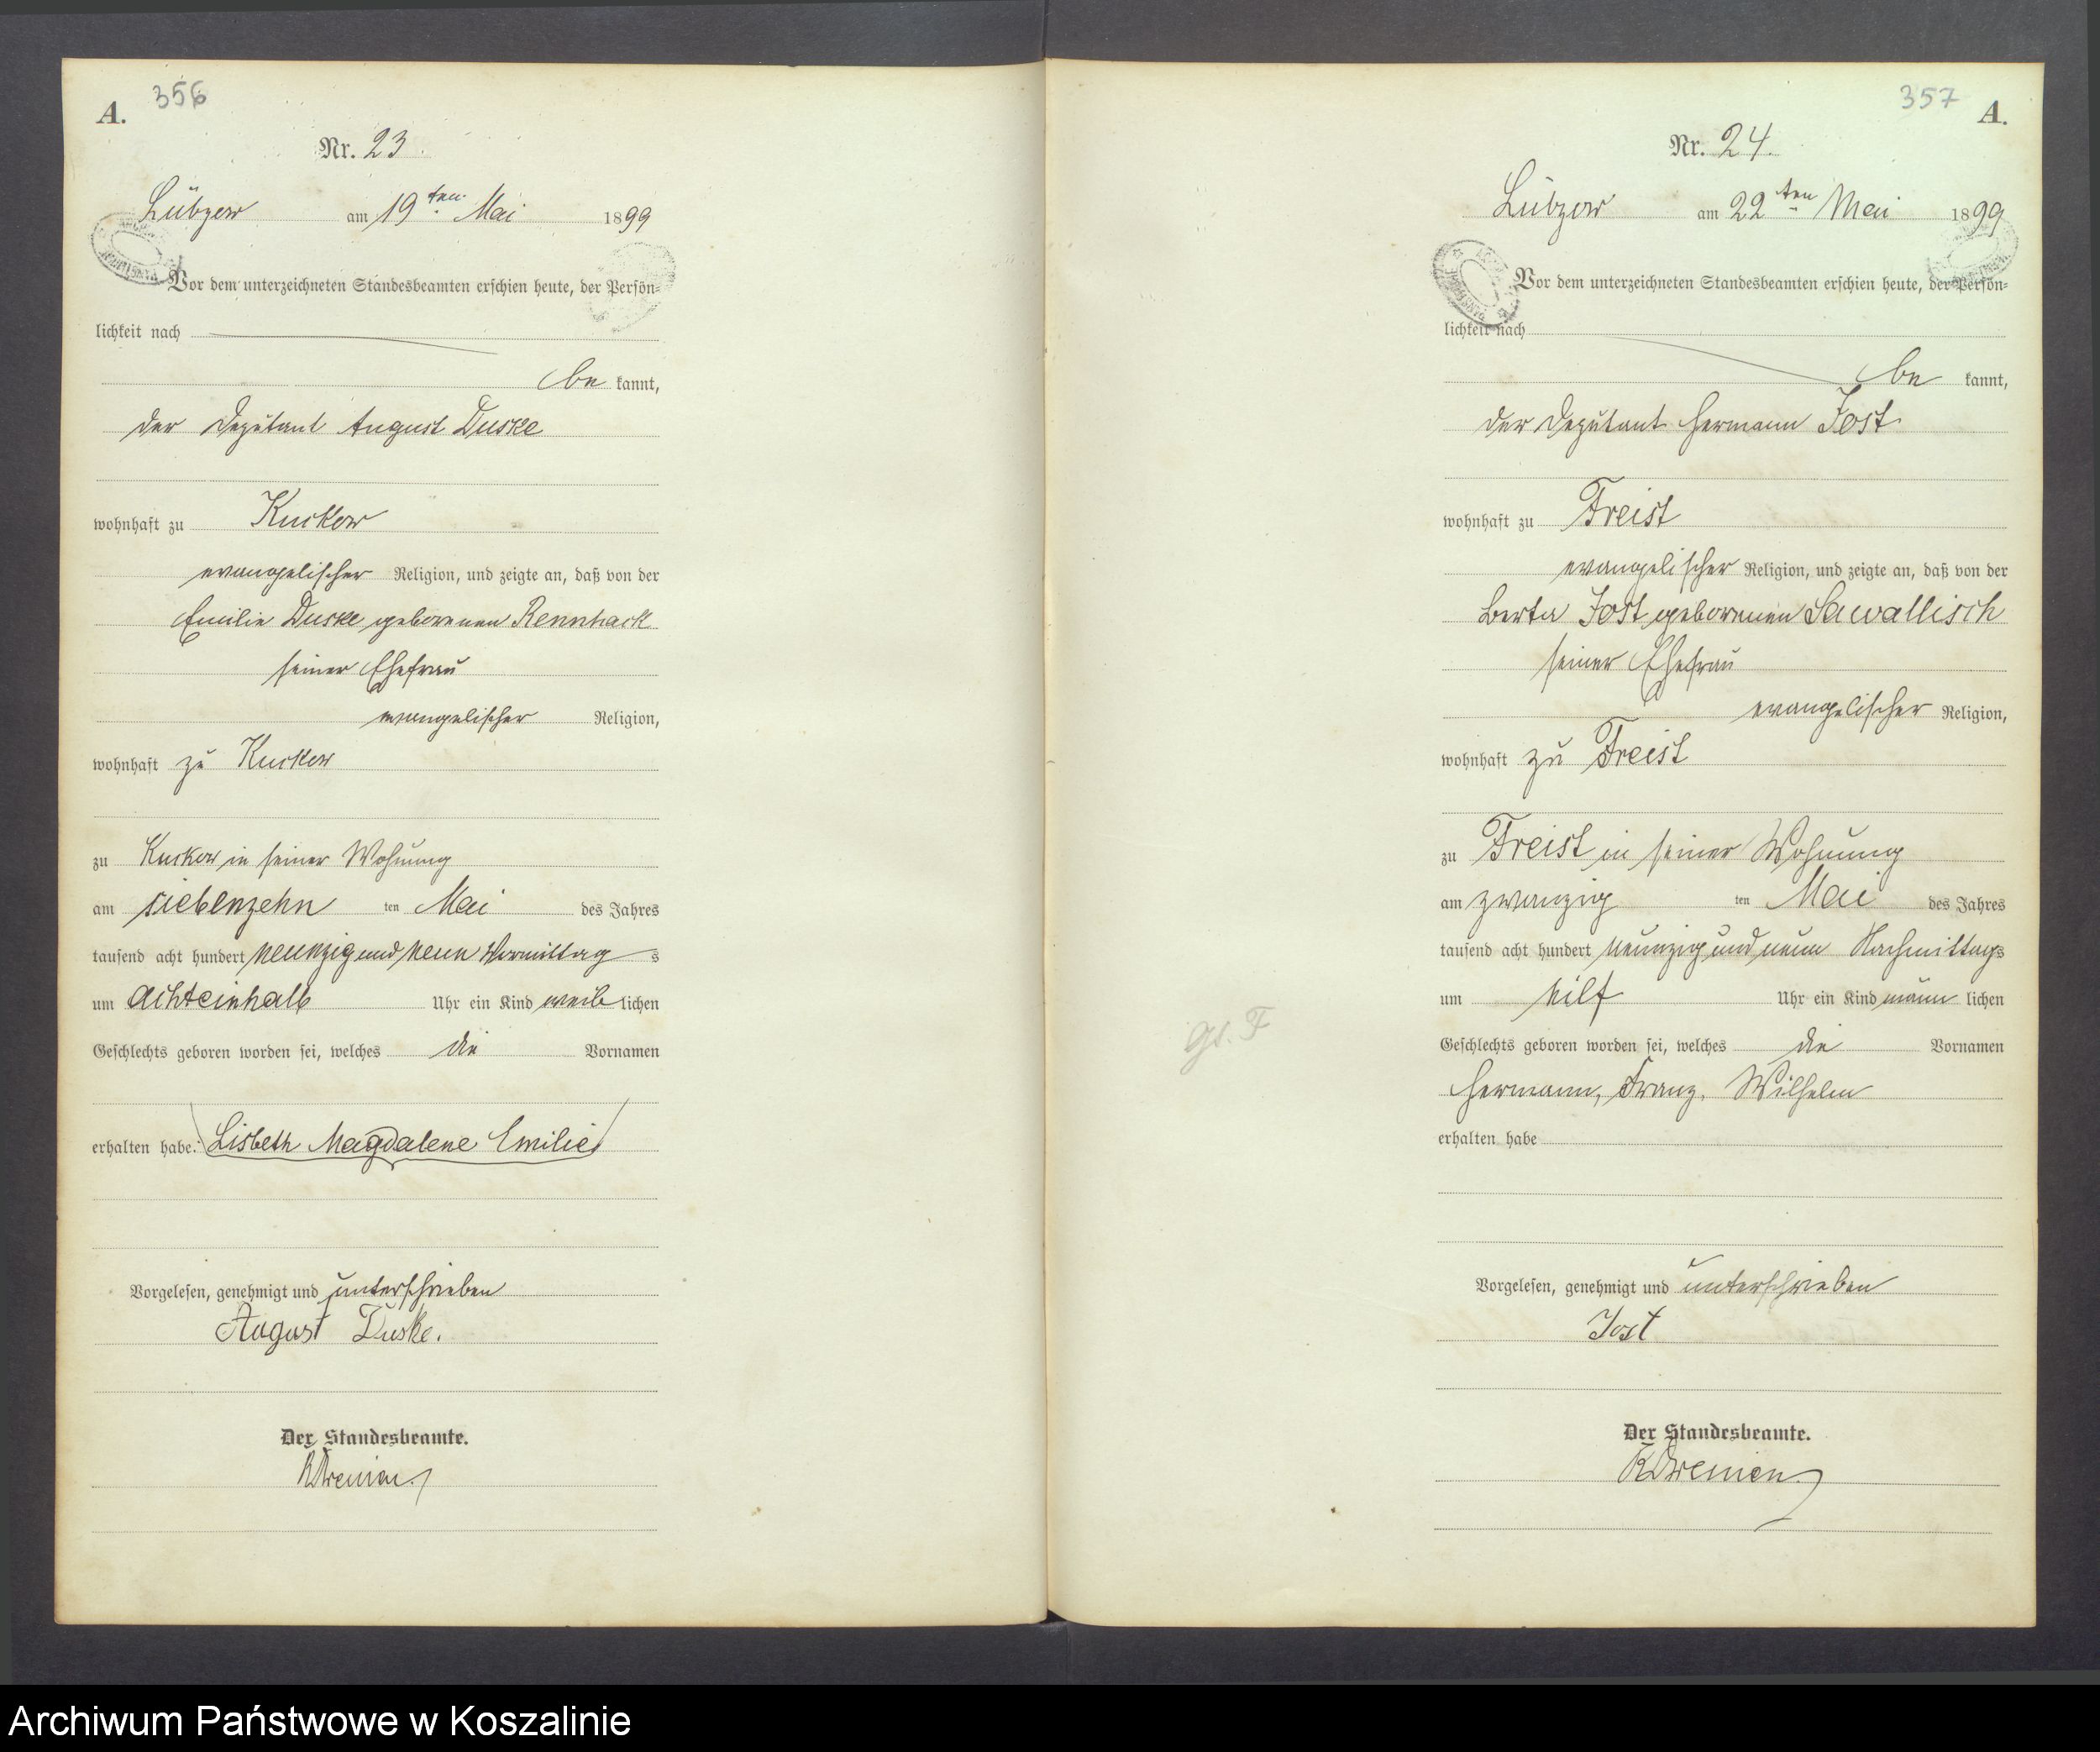 356
A.
Nr. 23.
Lübzow am 19ten Mai 1899
Vor dem unterzeichneten Standesbeamten erschien heute, der Persön-
lichkeit nach
be kannt,
der Deputant August Duske
wohnhaft zu Kuskow
evangelischer Religion, und zeigte an, daß von der
Emilie Duske geborenen Rennhack
seiner Ehefrau
evangelischer Religion,
wohnhaft zu Kuskow
zu Kuskow in seiner Wohnung
am siebenzehn ten Mai des Jahres
tausend acht hundert neunzig und neun Vormittag s
um achteinhalb Uhr ein Kind weib lichen
Geschlechts geboren worden sei, welches die Vornamen
erhalten habe: Lisbeth Magdalene Emilie
Vorgelesen, genehmigt und unterschrieben
August Duske.
Der Standesbeamte.
357
A.
Nr. 24.
Lübzow am 22ten Mai 1899
Vor dem unterzeichneten Standesbeamten erschien heute, der Persön-
lichkeit nach
be kannt,
der Deputant Hermann Jost
wohnhaft zu Freist
evangelischer Religion, und zeigte an, daß von der
Berta Jost geborenen Sawallisch
seiner Ehefrau
evangelischer Religion,
wohnhaft zu Freist
zu Freist in seiner Wohnung
am zwanzig ten Mai des Jahres
tausend acht hundert neunzig und neun Nachmittags
um elf Uhr ein Kind männ lichen
Geschlechts geboren worden sei, welches die Vornamen
Hermann, Franz, Wilhelm
erhalten habe
Vorgelesen, genehmigt und unterschrieben
Jost
Der Standesbeamte.
Archiwum Państwowe w Koszalinie